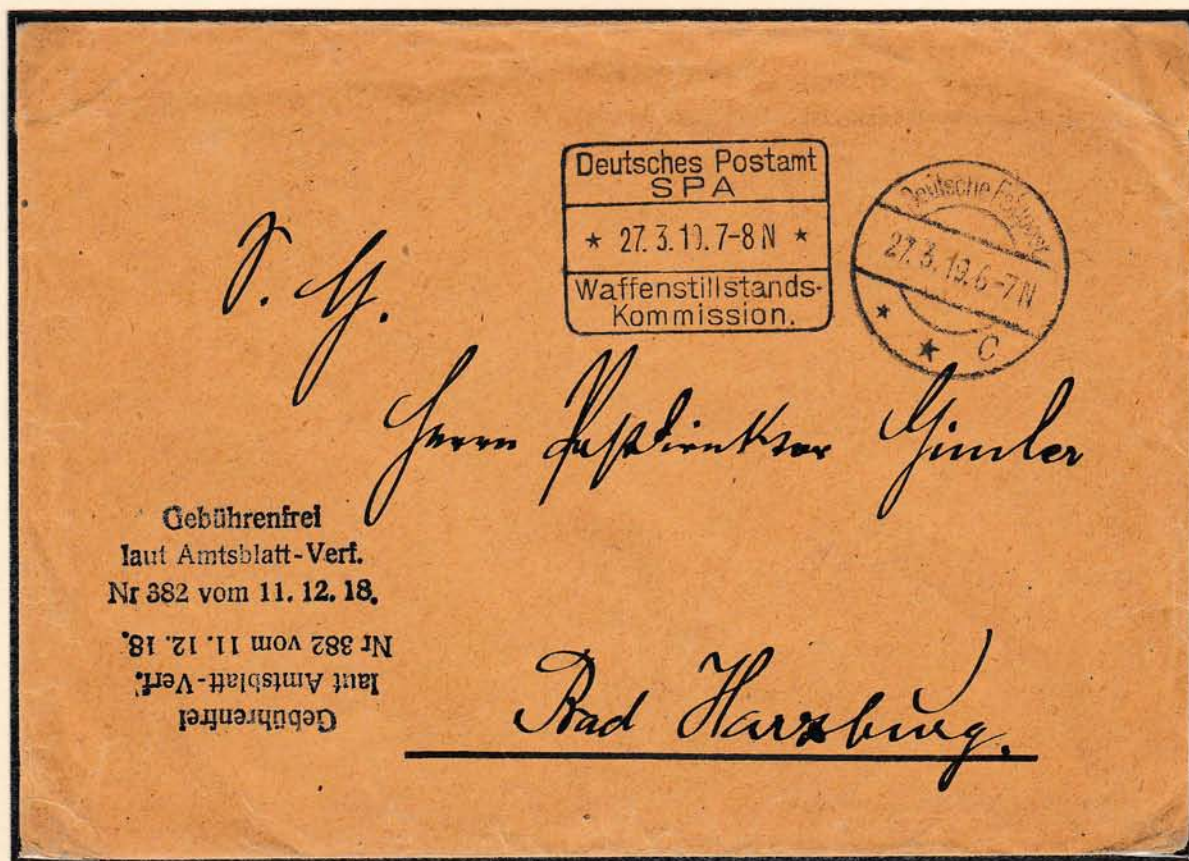 Deutsches Postamt
SPA
* 27. 3. 19. 7-8 N *
Waffenstillstands-
Kommission.
Deutsche Feldpost
27. 3. 19. 6-7 N
* * C
S. H.
Herrn Postdirektor Himler
Gebührenfrei
laut Amtsblatt-Verf.
Nr 382 vom 11. 12. 18.
Gebührenfrei
laut Amtsblatt-Verf.
Nr 382 vom 11. 12. 18.
Bad Harzburg.